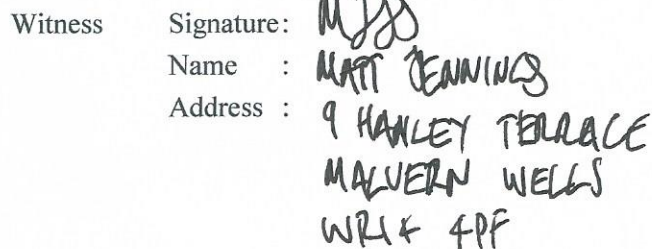 Witness Signature:
Name : MATT JENNINGS
Address : 9 HANLEY TERRACE
MALVERN WELLS
WR14 4PF